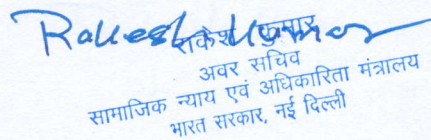 Rakesh Kumar
राकेश कुमार
अवर सचिव
सामाजिक न्याय एवं अधिकारिता मंत्रालय
भारत सरकार, नई दिल्ली